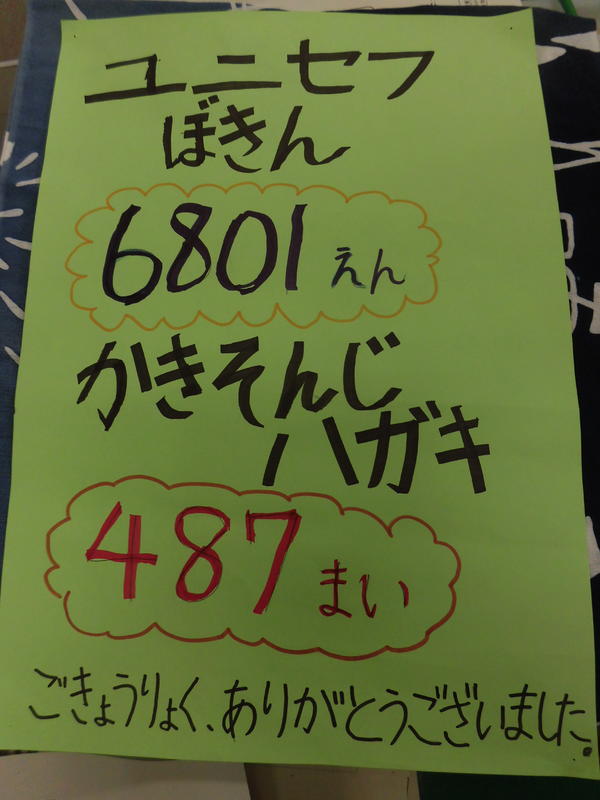 ユニセフ
ぼきん
6801えん
かきそんじ
ハガキ
487まい
ごきょうりょく、ありがとうございました。